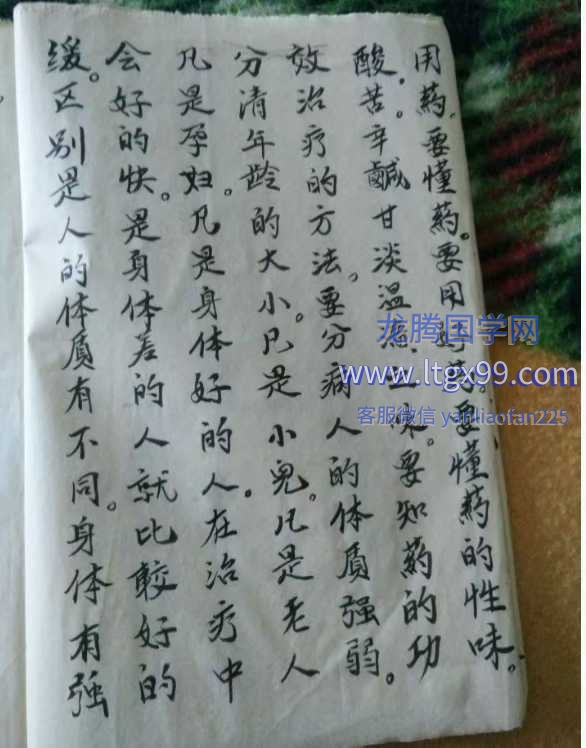 用药,要懂药。要用好药。要懂药的性味。
酸。苦。辛鹹甘淡温 味。要知药的功
效治疗的方法。要分病人的体质强弱。
分清年龄的大小。凡是小儿。凡是老人
凡是孕妇。凡是身体好的人。在治疗中
会好的快。是身体差的人就比較好的
缓。区别是人的体质有不同。身体有強
龙腾国学网
www.ltgx99.com
客服微信 yanliaofan225